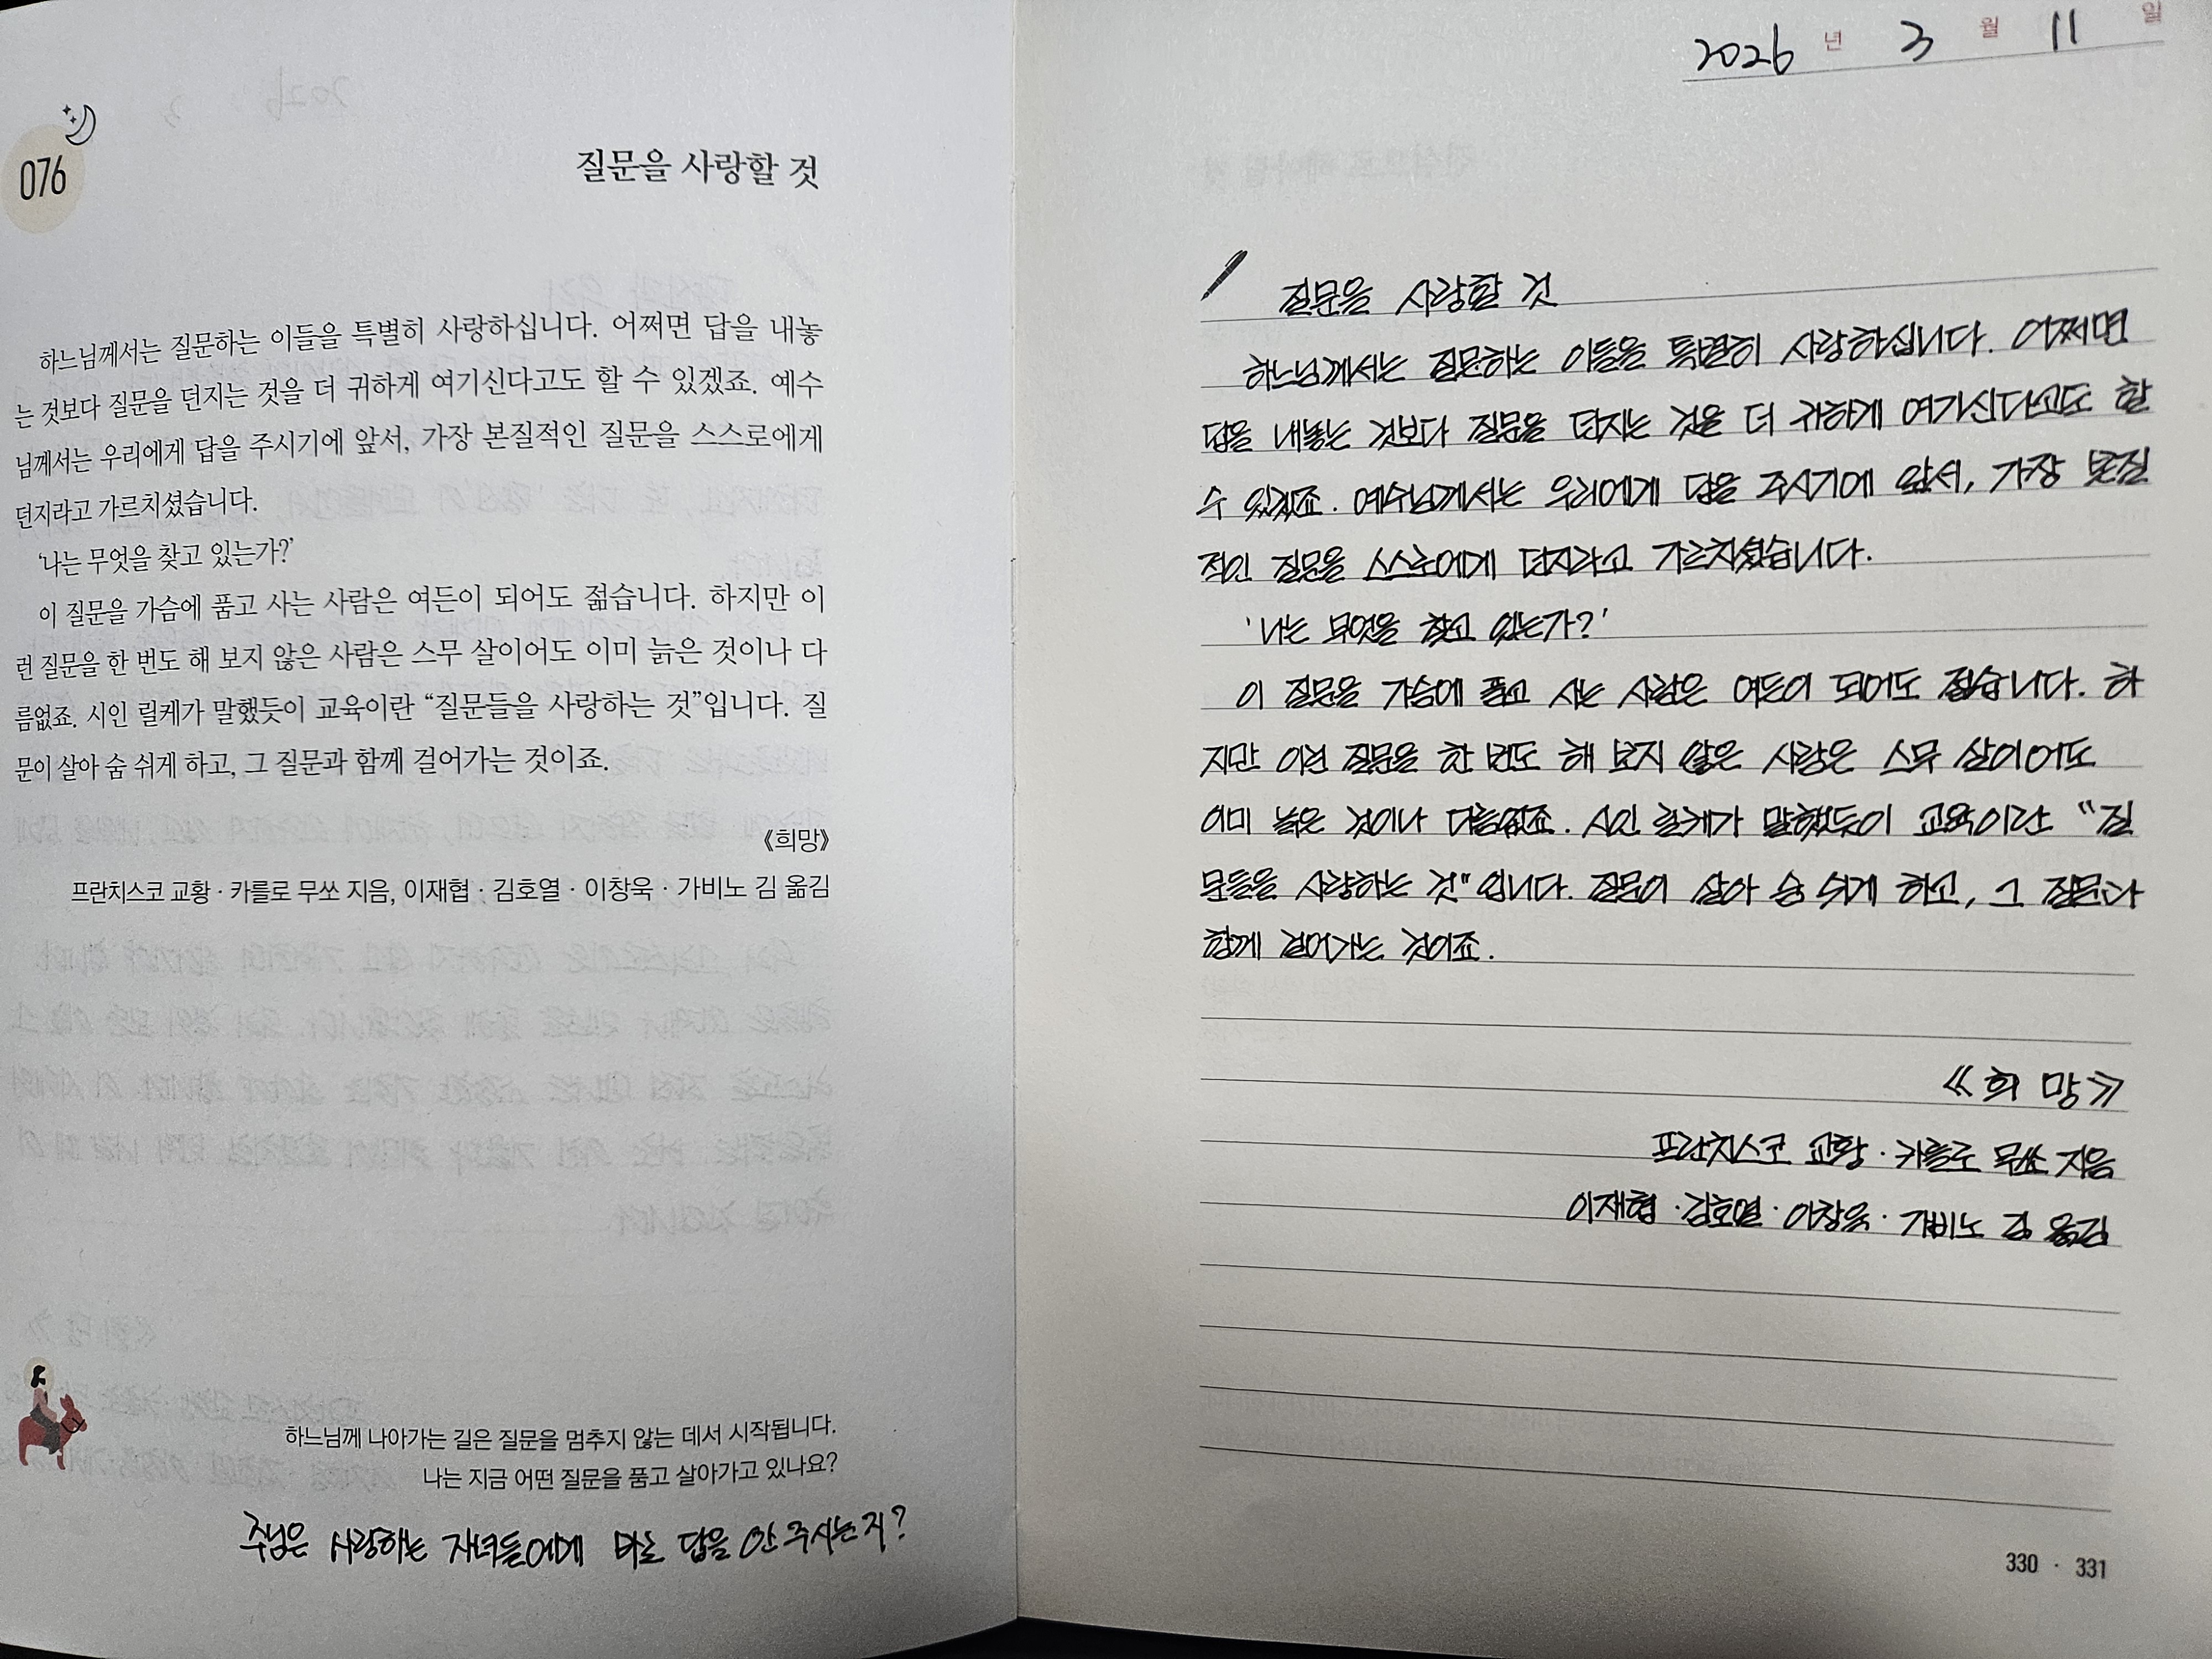 076
질문을 사랑할 것
하느님께서는 질문하는 이들을 특별히 사랑하십니다. 어쩌면 답을 내놓
는 것보다 질문을 던지는 것을 더 귀하게 여기신다고도 할 수 있겠죠. 예수
님께서는 우리에게 답을 주시기에 앞서, 가장 본질적인 질문을 스스로에게
던지라고 가르치셨습니다.
‘나는 무엇을 찾고 있는가?’
이 질문을 가슴에 품고 사는 사람은 여든이 되어도 젊습니다. 하지만 이
런 질문을 한 번도 해 보지 않은 사람은 스무 살이어도 이미 늙은 것이나 다
름없죠. 시인 릴케가 말했듯이 교육이란 “질문들을 사랑하는 것”입니다. 질
문이 살아 숨 쉬게 하고, 그 질문과 함께 걸어가는 것이죠.
《희망》
프란치스코 교황 · 카를로 무쏘 지음, 이재협 · 김호열 · 이창욱 · 가비노 김 옮김
하느님께 나아가는 길은 질문을 멈추지 않는 데서 시작됩니다.
나는 지금 어떤 질문을 품고 살아가고 있나요?
주님은 사랑하는 자녀들에게 바로 답을 안 주시는지?
2026 년 3 월 11 일
질문을 사랑할 것
하느님께서는 질문하는 이들을 특별히 사랑하십니다. 어쩌면
답을 내놓는 것보다 질문을 던지는 것을 더 귀하게 여기신다고도 할
수 있겠죠. 예수님께서는 우리에게 답을 주시기에 앞서, 가장 본질
적인 질문을 스스로에게 던지라고 가르치셨습니다.
'나는 무엇을 찾고 있는가?'
이 질문을 가슴에 품고 사는 사람은 여든이 되어도 젊습니다. 하
지만 이런 질문을 한 번도 해 보지 않은 사람은 스무 살이어도
이미 늙은 것이나 다름없죠. 시인 릴케가 말했듯이 교육이란 "질
문들을 사랑하는 것"입니다. 질문이 살아 숨 쉬게 하고, 그 질문과
함께 걸어가는 것이죠.
《희망》
프란치스코 교황 · 카를로 무쏘 지음
이재협 · 김호열 · 이창욱 · 가비노 김 옮김
330 · 331